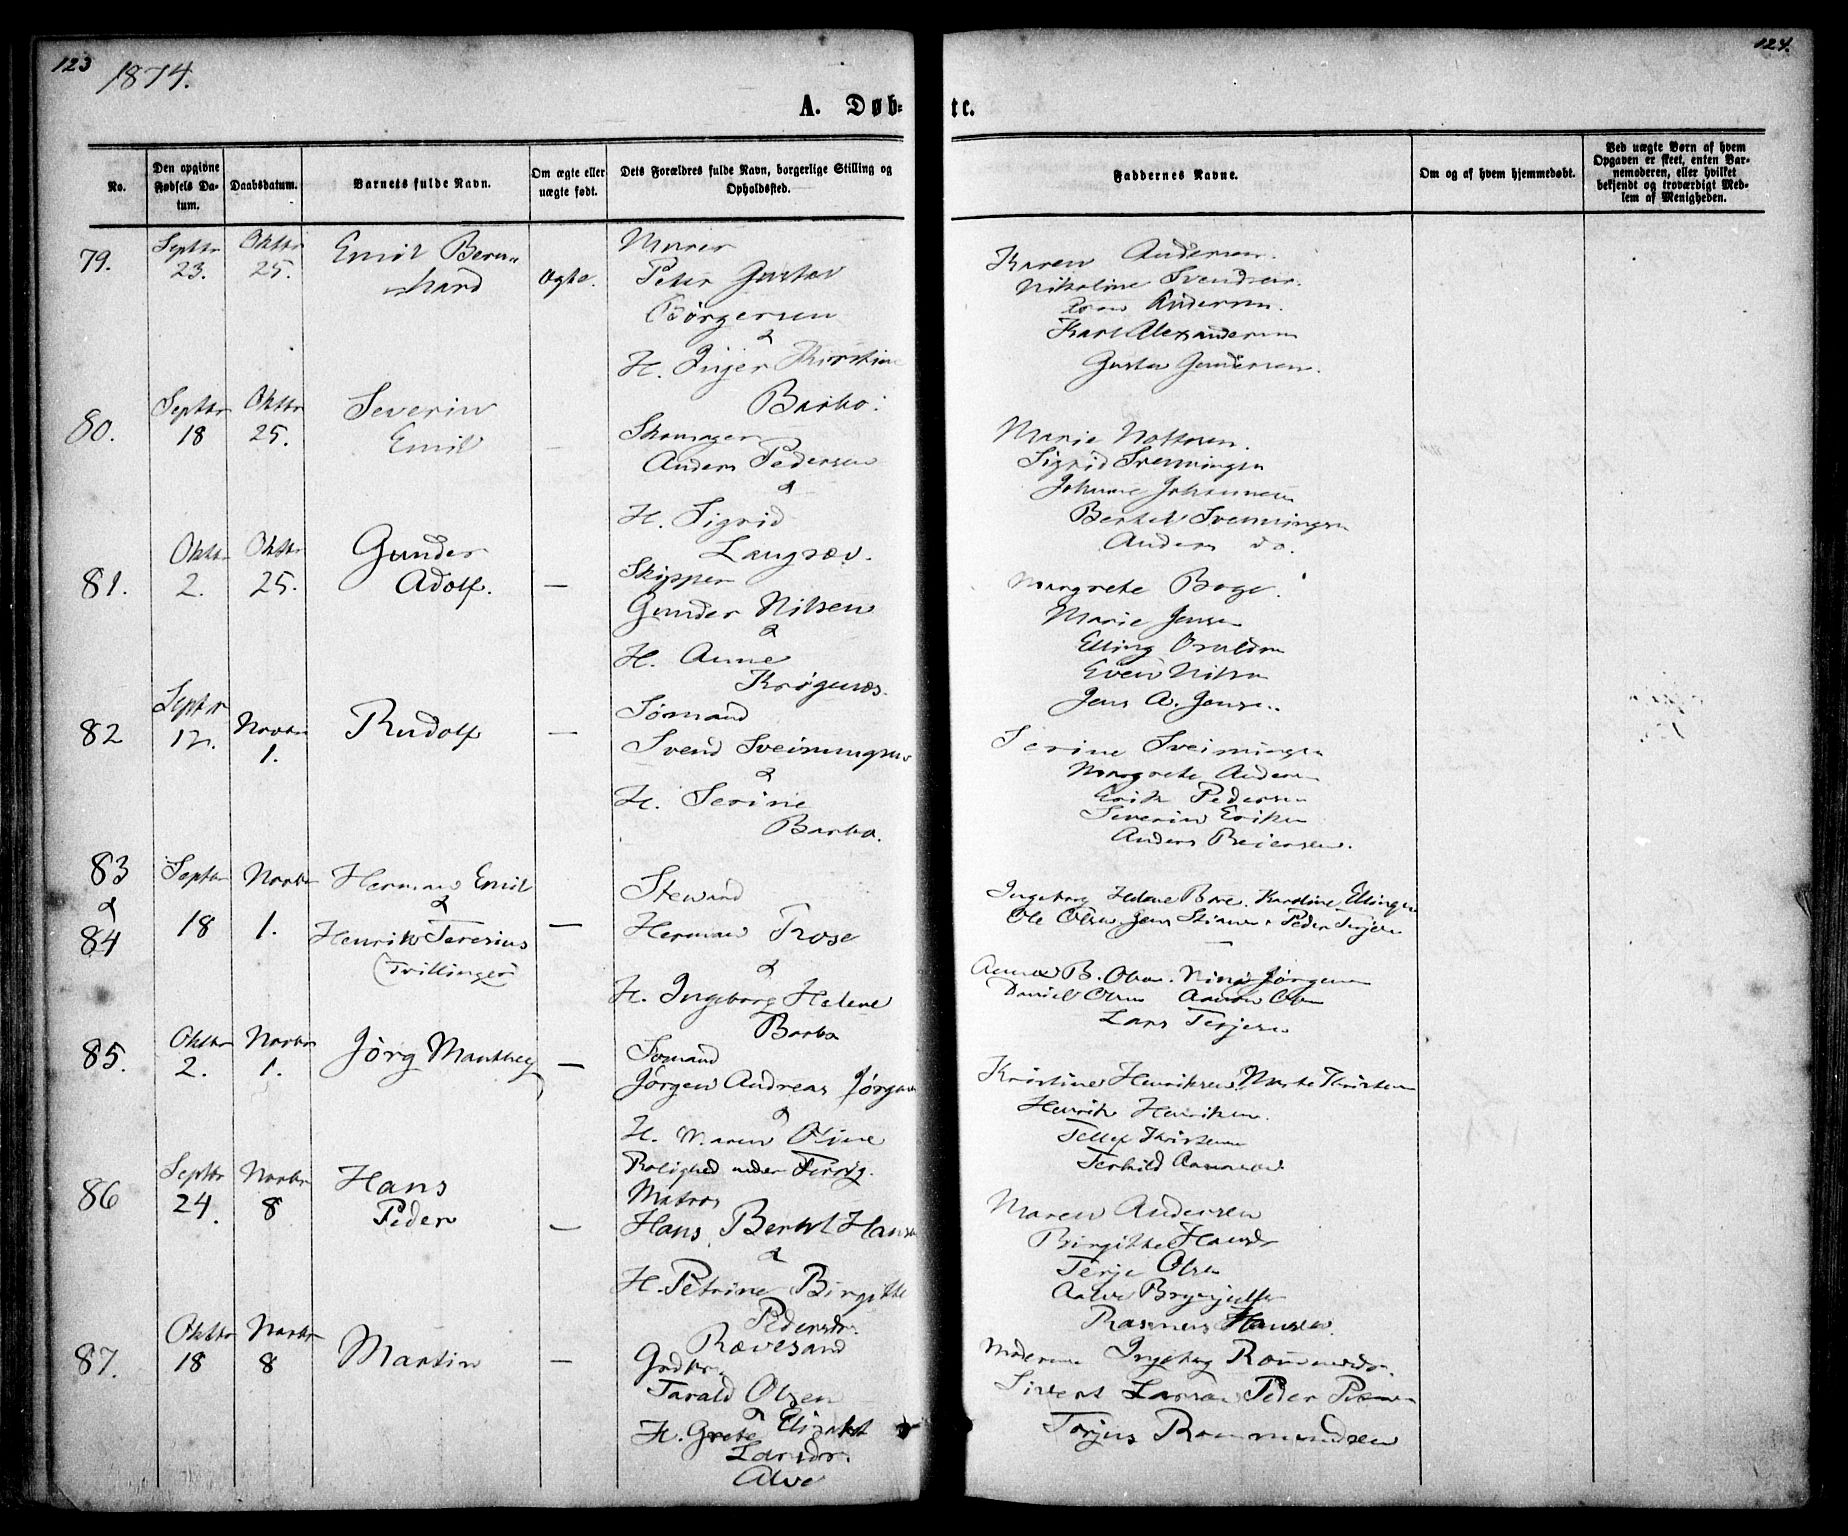 123
1874.
124.
A. Døb-
te.
No.
Den opgivne Fødsels Da-tum.
Daabsdatum.
Barnets fulde Navn.
Om ægte eller uægte født.
Dets Forældres fulde Navn, borgerlige Stilling og Opholdssted.
Faddernes Navne.
Om og af hvem hjemmedøbt.
Ved uægte Børn af hvem Opgaven er skeet, enten Bar-nemoderen, eller hvilket bekjendt og troværdigt Med-lem af Menigheden.
79.
Septbr 23.
Oktbr 25.
Emil Bern-
hard
Ægte.
Murer
Peter Gustav
Börgersen
&
H. Inger Kirstine
Barbo.
Karen Andersen.
Nikoline Svendsen.
Andersen.
Karl Alexandersen
Gustav Gundersen.
80.
Septbr 18
Oktbr 25.
Severin
Emil
—
Skomager
Anders Pedersen
&
H. Sigrid
Langsæv.
Marie
Sigrid Svenningsen
Johanne Johannesen
Berthel Svenningsen
Anders do.
81.
Oktbr 2.
Oktbr 25.
Gunder
Adolf.
—
Skipper
Gunder Nilsen
&
H. Anne
Krøgenæs.
Margrethe Boge.
Marie Jensen
Elling
Even Nilsen
Jens A. Jensen.
82
Septbr 12.
Novbr 1.
Rudolf
—
Sømand
Svend Sveinungsen
&
H. Serine
Barbo.
Serine Sveinungsen
Margrethe Andersen
Erik Pedersen
Severin Eriksen
Anders Reiersen.
83
&
84
Septbr
18
Novbr
1.
Herman Emil
&
Henrik Teresius
(Tvillinger)
—
Steward
Herman Rose
&
H. Ingeborg Helene
Barbo
Ingeborg Helene Karoline Ellingsen
Ole Olsen Jens & Peder Terjesen
—
B. Olsen. Jørgensen
Daniel Olsen Aanon Olsen
Lars Terjesen
85.
Oktbr 2.
Novbr 1.
Jörg Manthey
—
Sömand
Jørgen Andreas Jørgensen
&
H. Maren Oline
Rolighed under
Kristine Henriksen,
Henrik Henriksen.
Tellef
Terkild
86
Septbr 24.
Novbr 8
Hans
Peder
—
Matros
Hans Berthel Hansen
&
H. Petrine Birgitte
Pedersdr.
Rævesand
Maren Andersen
Birgitte Hansdr
Terje Olsen
Rasmus Hansen.
87.
Oktbr 18
Novbr 8
Martin
—
Grdbr.
Tarald Olsen
&
H. Grete Elisabet
Larsdr.
Alve
Moderen Ingeborg
Sivert Larsen Peder
Torjus Rommundsen